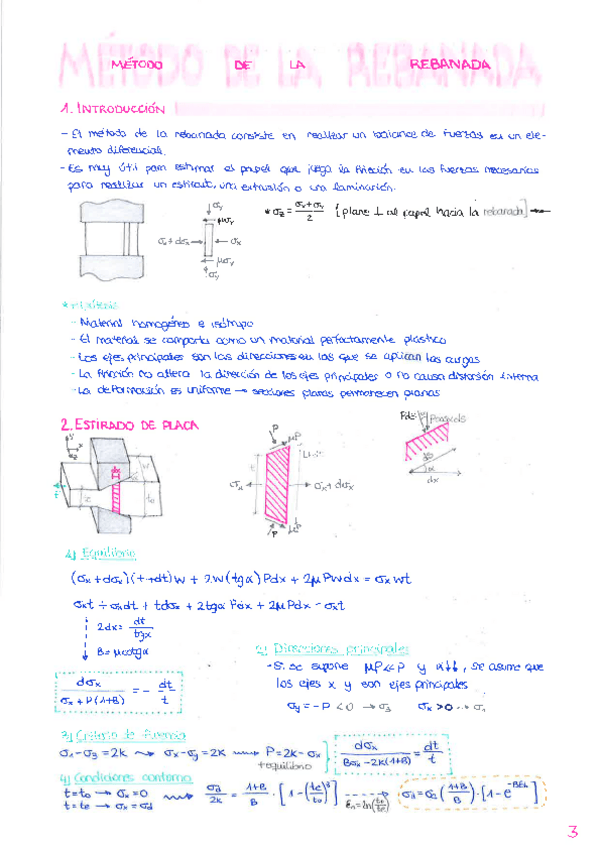 MÉTODO DE LA REBANADA
1. INTRODUCCIÓN
- El método de la rebanada consiste en realizar un balance de fuerzas en un ele-
mento diferencial.
- Es muy útil para estimar el papel que juega la fricción en las fuerzas necesarias
para realizar un estirado, una extrusión o una laminación.
σy
μσy
σx+dσx σx
μσy
σy
* σz = (σx+σy)/2 [plano ⊥ al papel hacia la rebanada]
* Hipótesis
- Material homogéneo e isótropo
- El material se comporta como un material perfectamente plástico
- Los ejes principales son las direcciones en las que se aplican las cargas
- La fricción no altera la dirección de los ejes principales o no causa distorsión interna
- La deformación es uniforme → secciones planas permanecen planas
2. ESTIRADO DE PLACA
P
μP
σx
σx+dσx
P
μP
α
dx
1) Equilibrio
(σx+dσx)(t+dt)w + 2w(tgα)Pdx + 2μPwdx = σxwt
σxt + σxdt + tdσx + 2tgαPdx + 2μPdx = σxt
2dx = dt/tgα
B = μcotgα
dσx/(σx+P(1+B)) = - dt/t
2) Direcciones principales
- Si se supone μP<<P y α↓↓, se asume que
los ejes x y son ejes principales
σy = -P < 0 → σ3 σx > 0 → σ1
3) Criterio de fluencia
σ1-σ3 = 2k → σx-σy = 2k → P = 2k-σx
+ equilibrio
dσx/(Bσx-2k(1+B)) = dt/t
4) Condiciones contorno
t=to → σx=0
t=te → σx=σd
σd/2k = (1+B)/B · [1-(te/to)^B]
εh = ln(to/te)
σd = σo((1+B)/B) · [1-e^(-Bεh)]
3